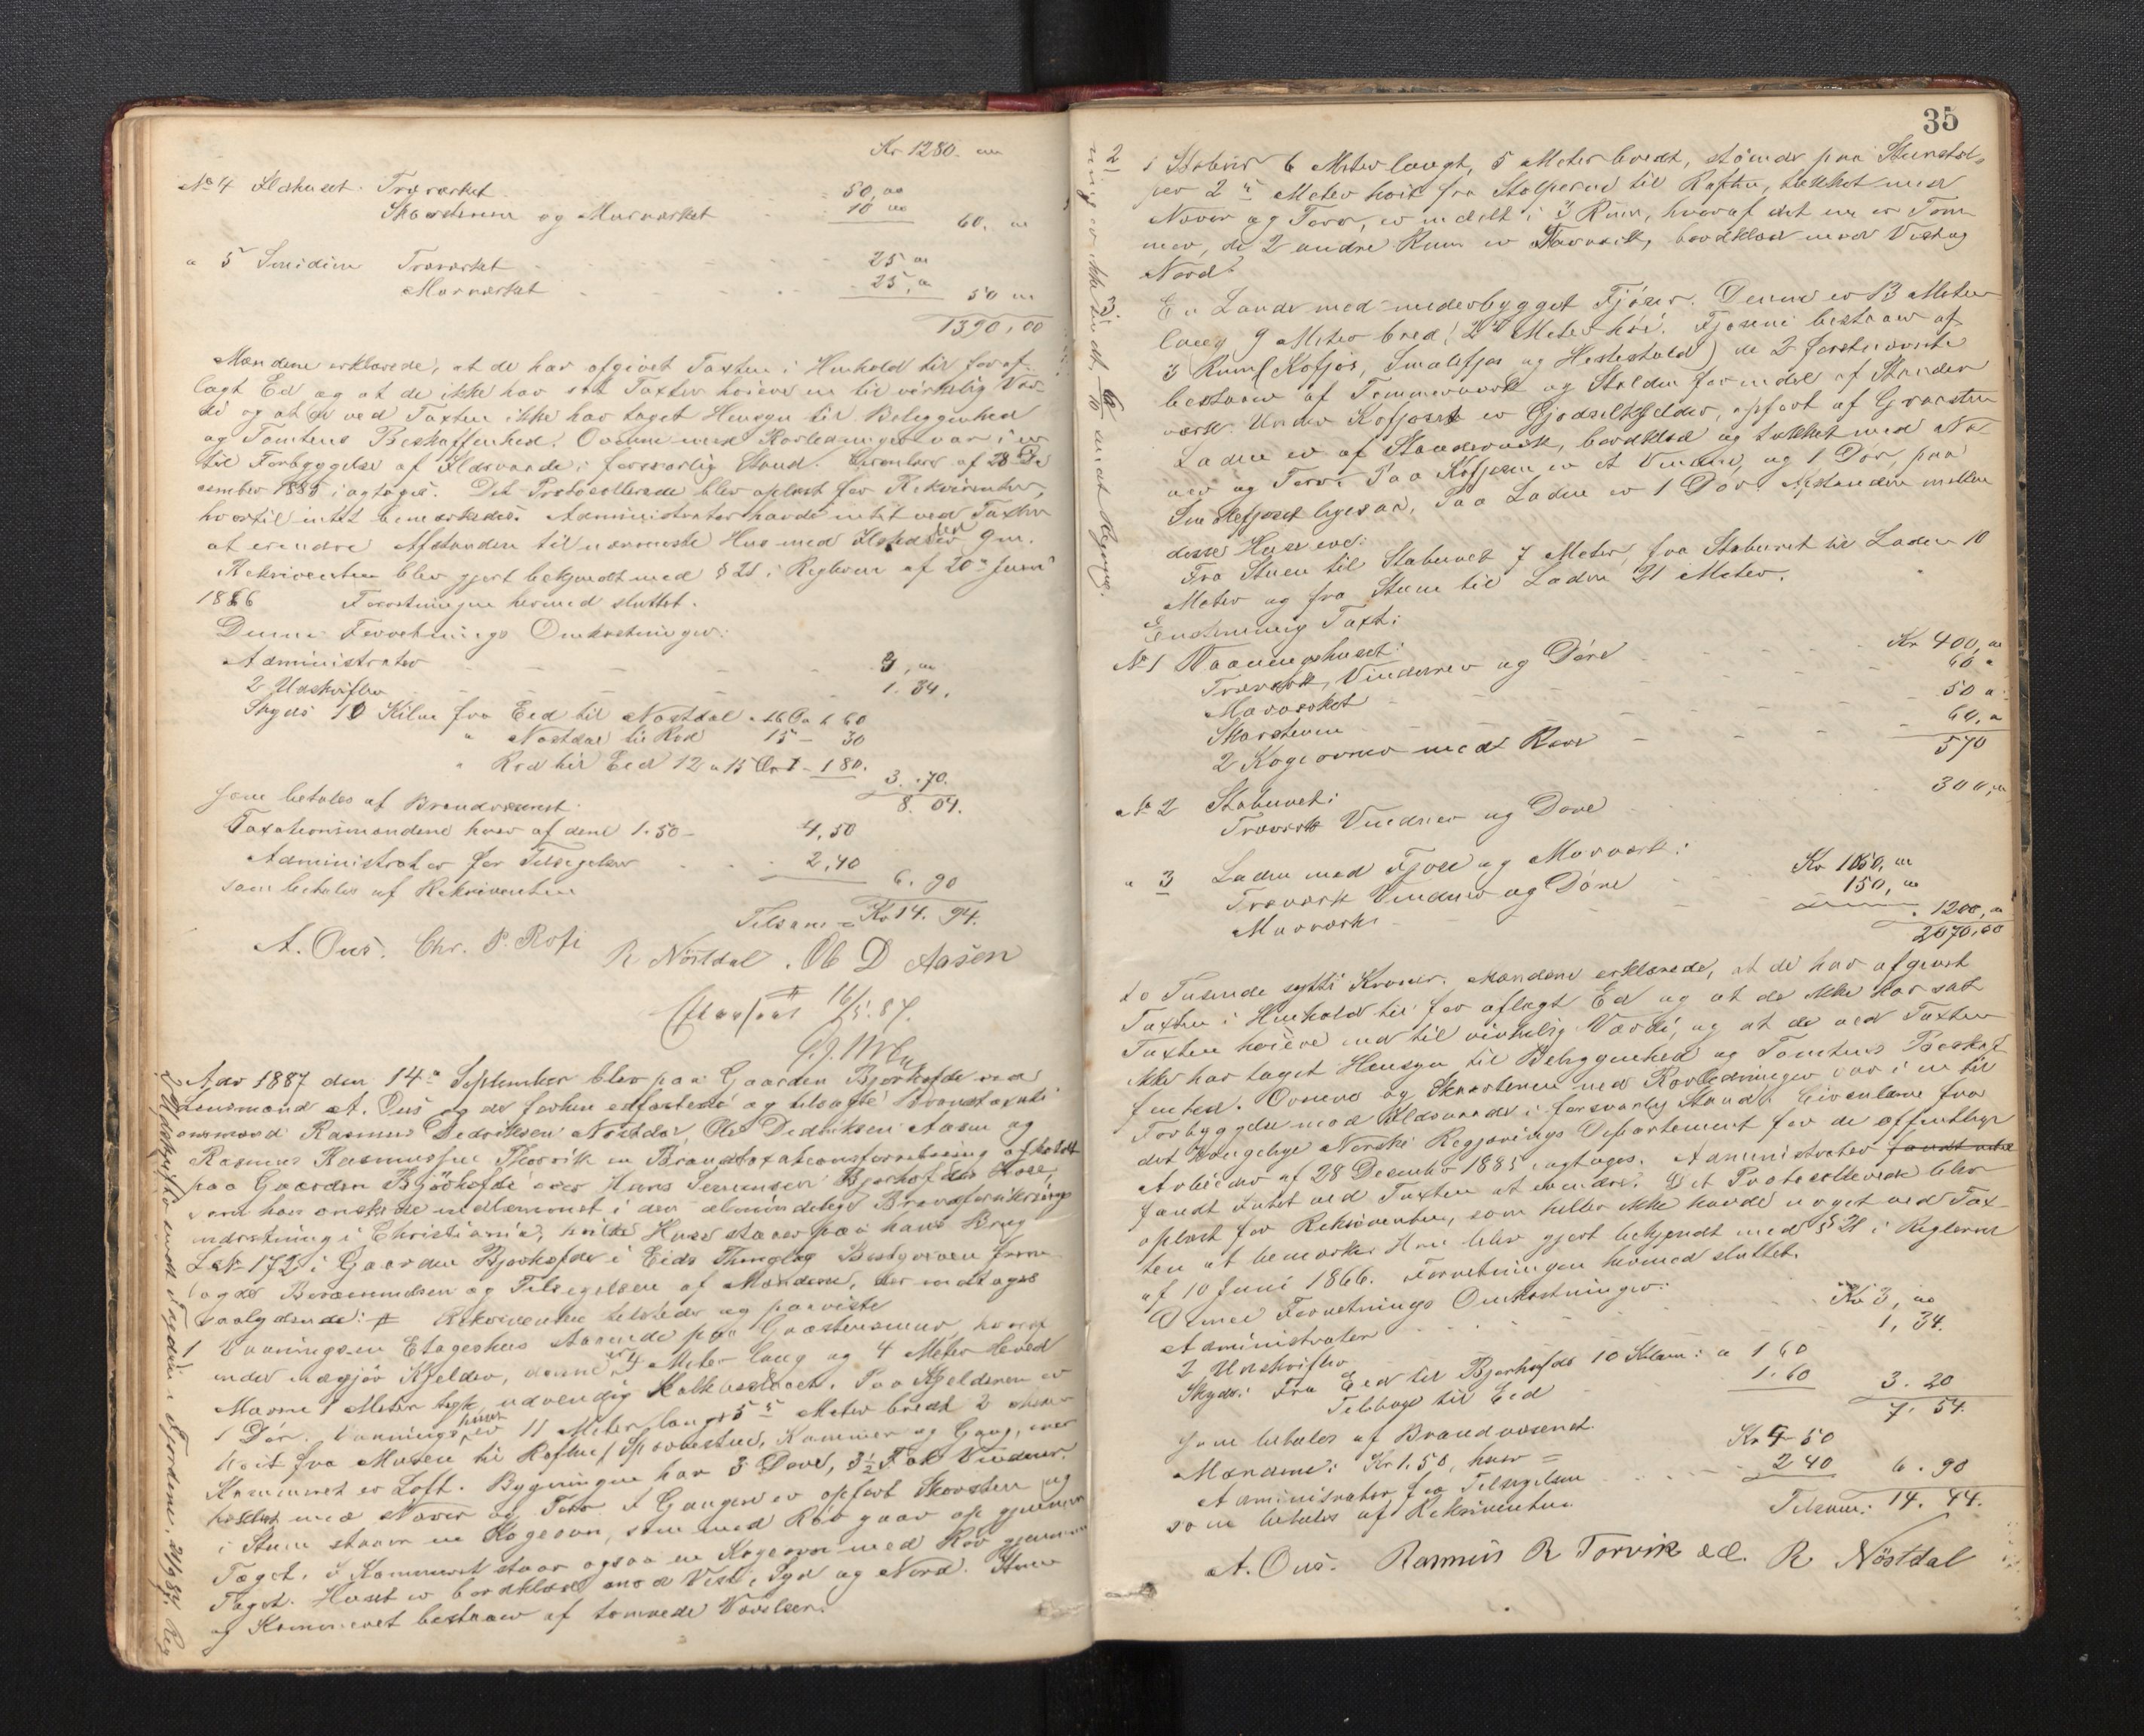 Kr 1280. "
No 4 Ildhuset. Træværket 50, 00
Skorstenen og Murværket 10 00
60. "
" 5 Smidien Træværket 25 "
Murværket 25, "
50 "
1390,00
Mændene erklærede, at de har afgivet Taxten i Henhold til før af-
lagt Ed og at de ikke har sat Taxten høiere en til virkelig Vær-
di og at de ved Taxten ikke har taget Hensyn til Beliggenhed
og Tomtens Beskaffenhed. Ovnene med Rørledninger var i en
til Forbyggelse af Ildsvaade forsvarlig Stand. Cirkulære af 28 De
cember 1885 iagtages. Det Protocollerede blev oplæst for Rekvirenten,
hvortil intet bemærkedes. Administrator havde intet ved Taxten
at erindre Afstanden til nærmeste Hus med Ildsted er 9 m.
Rekvirenten blev gjort bekjendt med § 21 i Reglerne af 20de Juni
1866 Forretningen hermed sluttet.
Denne Forretnings Omkostninger:
Administrator 3, "
2 Udskrifter 1. 34.
Skyds 10 Kilm fra Eid til Nøstdal a 16 Øre 1 60
" Nøstdal til Rød 15 – 30
" Rød til Eid 12 a 15 Øre 1 – 180.
3. 70.
som betales af Brandvæsenet. 8. 04.
Taxationsmændene hver af dem 1.50 – 4,50
Administrator for Tilsigelser 2,40
som betales af Rekvirenten 6. 90
Tilsam = Kr 14. 94.
A. Ous. Chr. P. Roti R Nöstdal. Ob D Aasen
16/5. 87.
Aar 1887 den 14de September blev paa Gaarden Bjørhofde ved
Lensmand A. Ous og de forhen edfæstede og tilsagte Brandtaxati
onsmænd Rasmus Dedriksen Nøstdal, Ole Dedriksen Aasen og
Rasmus Rasmussen Thorvik en Brandtaxationsforretning afholdt
paa Gaarden Bjørhofde over Hans Bjørhofdes Huse,
som han ønskede indlemmet i den almindelige Brandforsikrings
indretning i Christiania, hvilke Huse staaer paa hans Brug
L No 172 i Gaarden Bjørhofde i Eids Thinglag Bestyreren frem-
lagde Berammelsen og Tilsigelsen af Mændene, der indtages
saalydende: # Rekvirenten tilstede og paaviste
1 Vaaningsen Etageshus staaende paa Graastensmur, hvoraf
under udgjør Kjelder, denne er 4 Meter lang og 4 Meter bred
Muren 1 Meter tyk, udvendig Kalkudslaaet. Paa Kjelderen er
1 Dør. Vaaningshuset er 11 Meter langt 5 5 Meter bredt 2 Meter
høit fra Muren til Raftne, Kammer og Gang, over
Kammeret er Loft. Bygningen har 3 Døre, 3½ Fak Vinduer.
tækket med Næver og Torv I Gangen er opført Skorsten og
i Stuen staaer en Kogeovn, som med Rør gaar op gjennem
Taget. I Kammeret staar ogsaa en Kogeovn med Rør gjennem
Taget. Huset er bordklædt mod Vest, Syd og Nord. Stuen
og Kammeret bestaaer af tømrede Vægge.
2 Udskrifter sendt Fogden i Fjordene. 21/9 87. Reg
ning er ikke sendt. 6/10 sendt Regnge.
35
2) 1 Stabur 6 Meter langt, 5 Meter bredt, staaende paa Stenstol-
per 2 5 Meter høit fra Stolperne til Raftne, tækket med
Næver og Torv, er inddelt i 3 Rum, hvoraf det ene er Tøm-
mer, de 2 andre Rum er Staverværk, bordklædt mod Vest og
Nord.
3. En Lade med underbygget Fjøser. Denne er 13 Meter
lang 9 Meter bred, 2 Meter høi. Fjøsene bestaaer af
3 Rum (Kofjøs, Smalefjøs og Hestestald) de 2 førstnævnte
bestaaer af Tømmerværk og Stalden formedel af Stander
værk. Under Kofjøset er Gjødselkjelder, opført af Graasten
Laden er af Standerværk, bordklæd og tækket med Næ-
ver og Torv. Paa Kofjøsen er et Vindue, og 1 Dør, paa
Smalefjøset ligesaa, Paa Laden er 1 Dør. Afstanden mellem
disse Huse er:
Fra Stuen til Staburet 7 Meter, fra Staburet til Laden 10
Meter og fra Stuen til Laden 21 Meter.
Enstemmig Taxt:
No 1 Vaaningshuset:
Træværk, Vinduer og Døre Kr 400, "
Murværket 60 "
Skorstenen 50 "
2 Kogeovner med Rør 60, "
570
No 2 Staburet:
Træværk Vinduer og Døre 300, "
" 3 Laden med Fjøse og Murværk:
Træværk Vinduer og Døre Kr 1050, "
Murværk 150, "
1200, "
2070,00
to Tusinde sytti Kroner. Mændene erklærede, at de har afgivet
Taxten i Henhold til før aflagt Ed og at de ikke har sat
Taxten høiere end til virkelig Værdi, og at de ved Taxten
ikke har taget Hensyn til Beliggenhed og Tomtens Beskaf
fenhed. Ovnene og Skorstenen med Rørledninger var i en til
Forbyggelse mod Ildsvaade forsvarlig Stand. Circulære fra
det Kongelige Norske Regjerings Departement for de offentlige
Arbeider af 28 December 1885 iagtages. Administrator fandt intet
fandt Intet ved Taxten at erindre. Det Protocollerede blev
oplæst for Rekvirenten, som heller ikke havde noget ved Tax-
ten at bemærke Han blev gjort bekjendt med § 21 i Reglerne
af 10 Juni 1866. Forretningen hermed sluttet.
Denne Forretnings Omkostninger:
Administrator Kr 3, "
2 Udskrifter 1, 34.
Skyds: Fra Eid til Bjørhofde 10 Kilm: a 1 60
Tilbage til Eid 1. 60
3. 20
som betales af Brandvæsenet. 7. 54.
Mændene: Kr 1.50, hver = Kr 4 50
Administrator for Tilsigelsen 2 40
6. 90
som betales af Rekvirenten Tilsam: 14. 44.
A. Ous. Rasmus R Torvik R Nöstdal